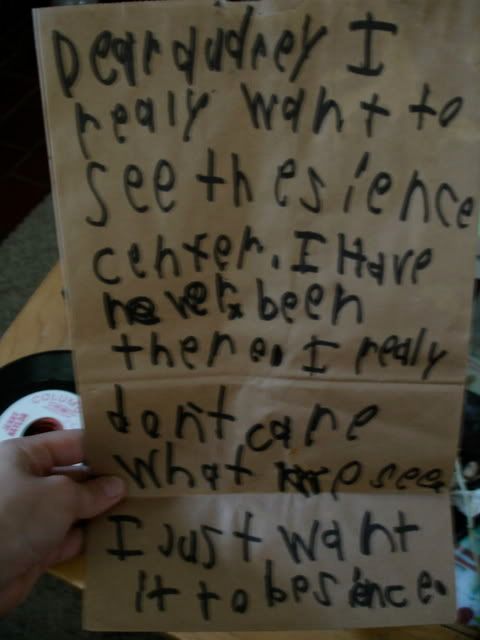 Dear audrey I
realy want to
see the sience
center. I Have
never been
there. I realy
don't care
what see
I Just want
it to be sience.
COLUM